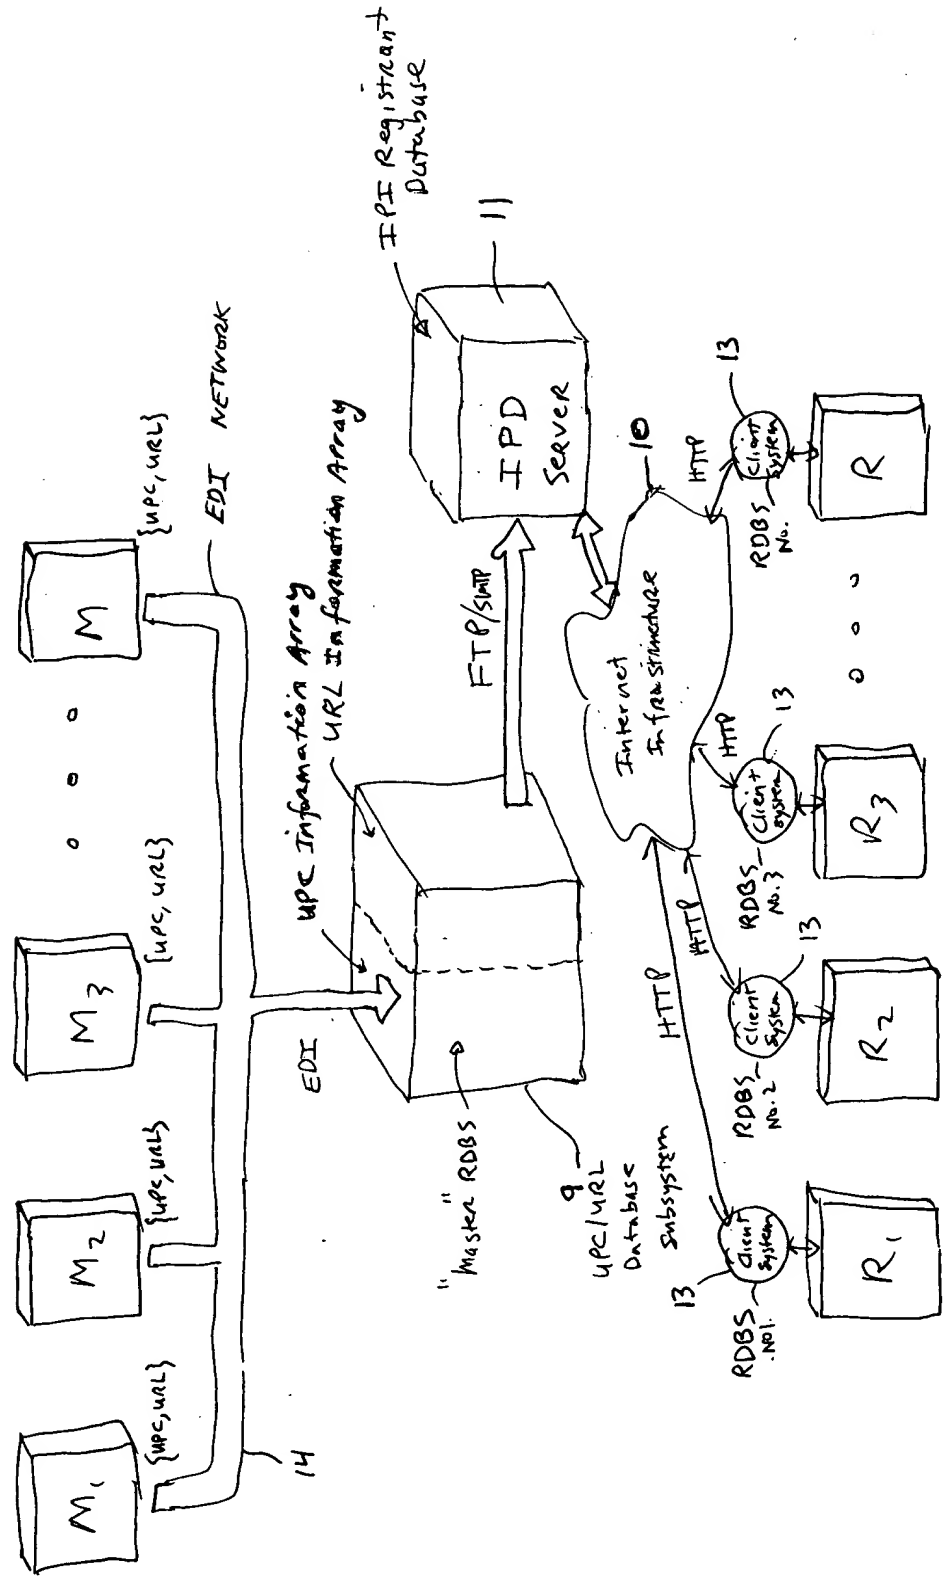 M1
M2
M3
M
{UPC, URL}
{UPC, URL}
{UPC, URL}
{UPC, URL}
14
EDI NETWORK
EDI
UPC Information Array
URL Information Array
"Master" RDBS
9
UPC/URL
Database
Subsystem
FTP/SMTP
IPD
Server
11
IPI Registrant
Database
10
Internet
Infrastructure
HTTP
HTTP
HTTP
HTTP
13
Client
System
RDBS
No1.
R1
13
Client
System
RDBS
No.2
R2
13
Client
System
RDBS
No.3
R3
13
Client
System
RDBS
No.
R